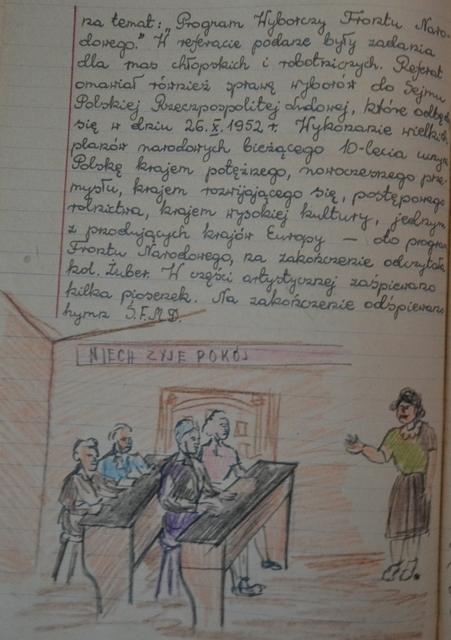 na temat: „Program Wyborczy Frontu Naro-
dowego." W referacie podane były zadania
dla mas chłopskich i robotniczych. Referat
omawiał również sprawę wyborów do Sejmu
Polskiej Rzeczpospolitej Ludowej, które odbędą
się w dniu 26.X.1952 r. Wykonanie wielkich
planów narodowych bieżącego 10-lecia uczyni
Polskę krajem potężnego, nowoczesnego prze-
mysłu, krajem rozwijającego się, postępowego
rolnictwa, krajem wysokiej kultury, jednym
z przodujących krajów Europy — oto program
Frontu Narodowego, na zakończenie odczytała
kol. Żuber. W części artystycznej zaśpiewano
kilka piosenek. Na zakończenie odśpiewano
hymn Ś.F.M.D.
NIECH ŻYJE POKÓJ